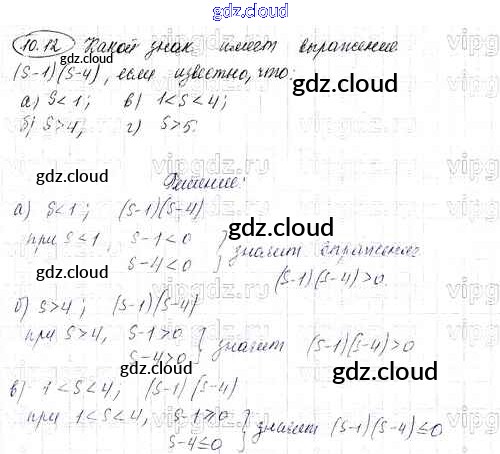 gdz.cloud
10.12 Какой знак имеет выражение
(S-1)(S-4), если известно, что:
а) S<1; в) 1<S<4;
б) S>4; г) S>5.
gdz.cloud
vipgdz
gdz.cloud
Решение:
а) S<1; (S-1)(S-4)
gdz.cloud
при S<1, S-1<0 } значит выражение
S-4<0
gdz.cloud
(S-1)(S-4)>0.
б) S>4; (S-1)(S-4)
при S>4, S-1>0 } значит (S-1)(S-4)>0
S-4>0
gdz.cloud
gdz.cloud
в) 1<S<4, (S-1)(S-4)
при 1<S<4, S-1≥0 } значит (S-1)(S-4)≤0
S-4≤0